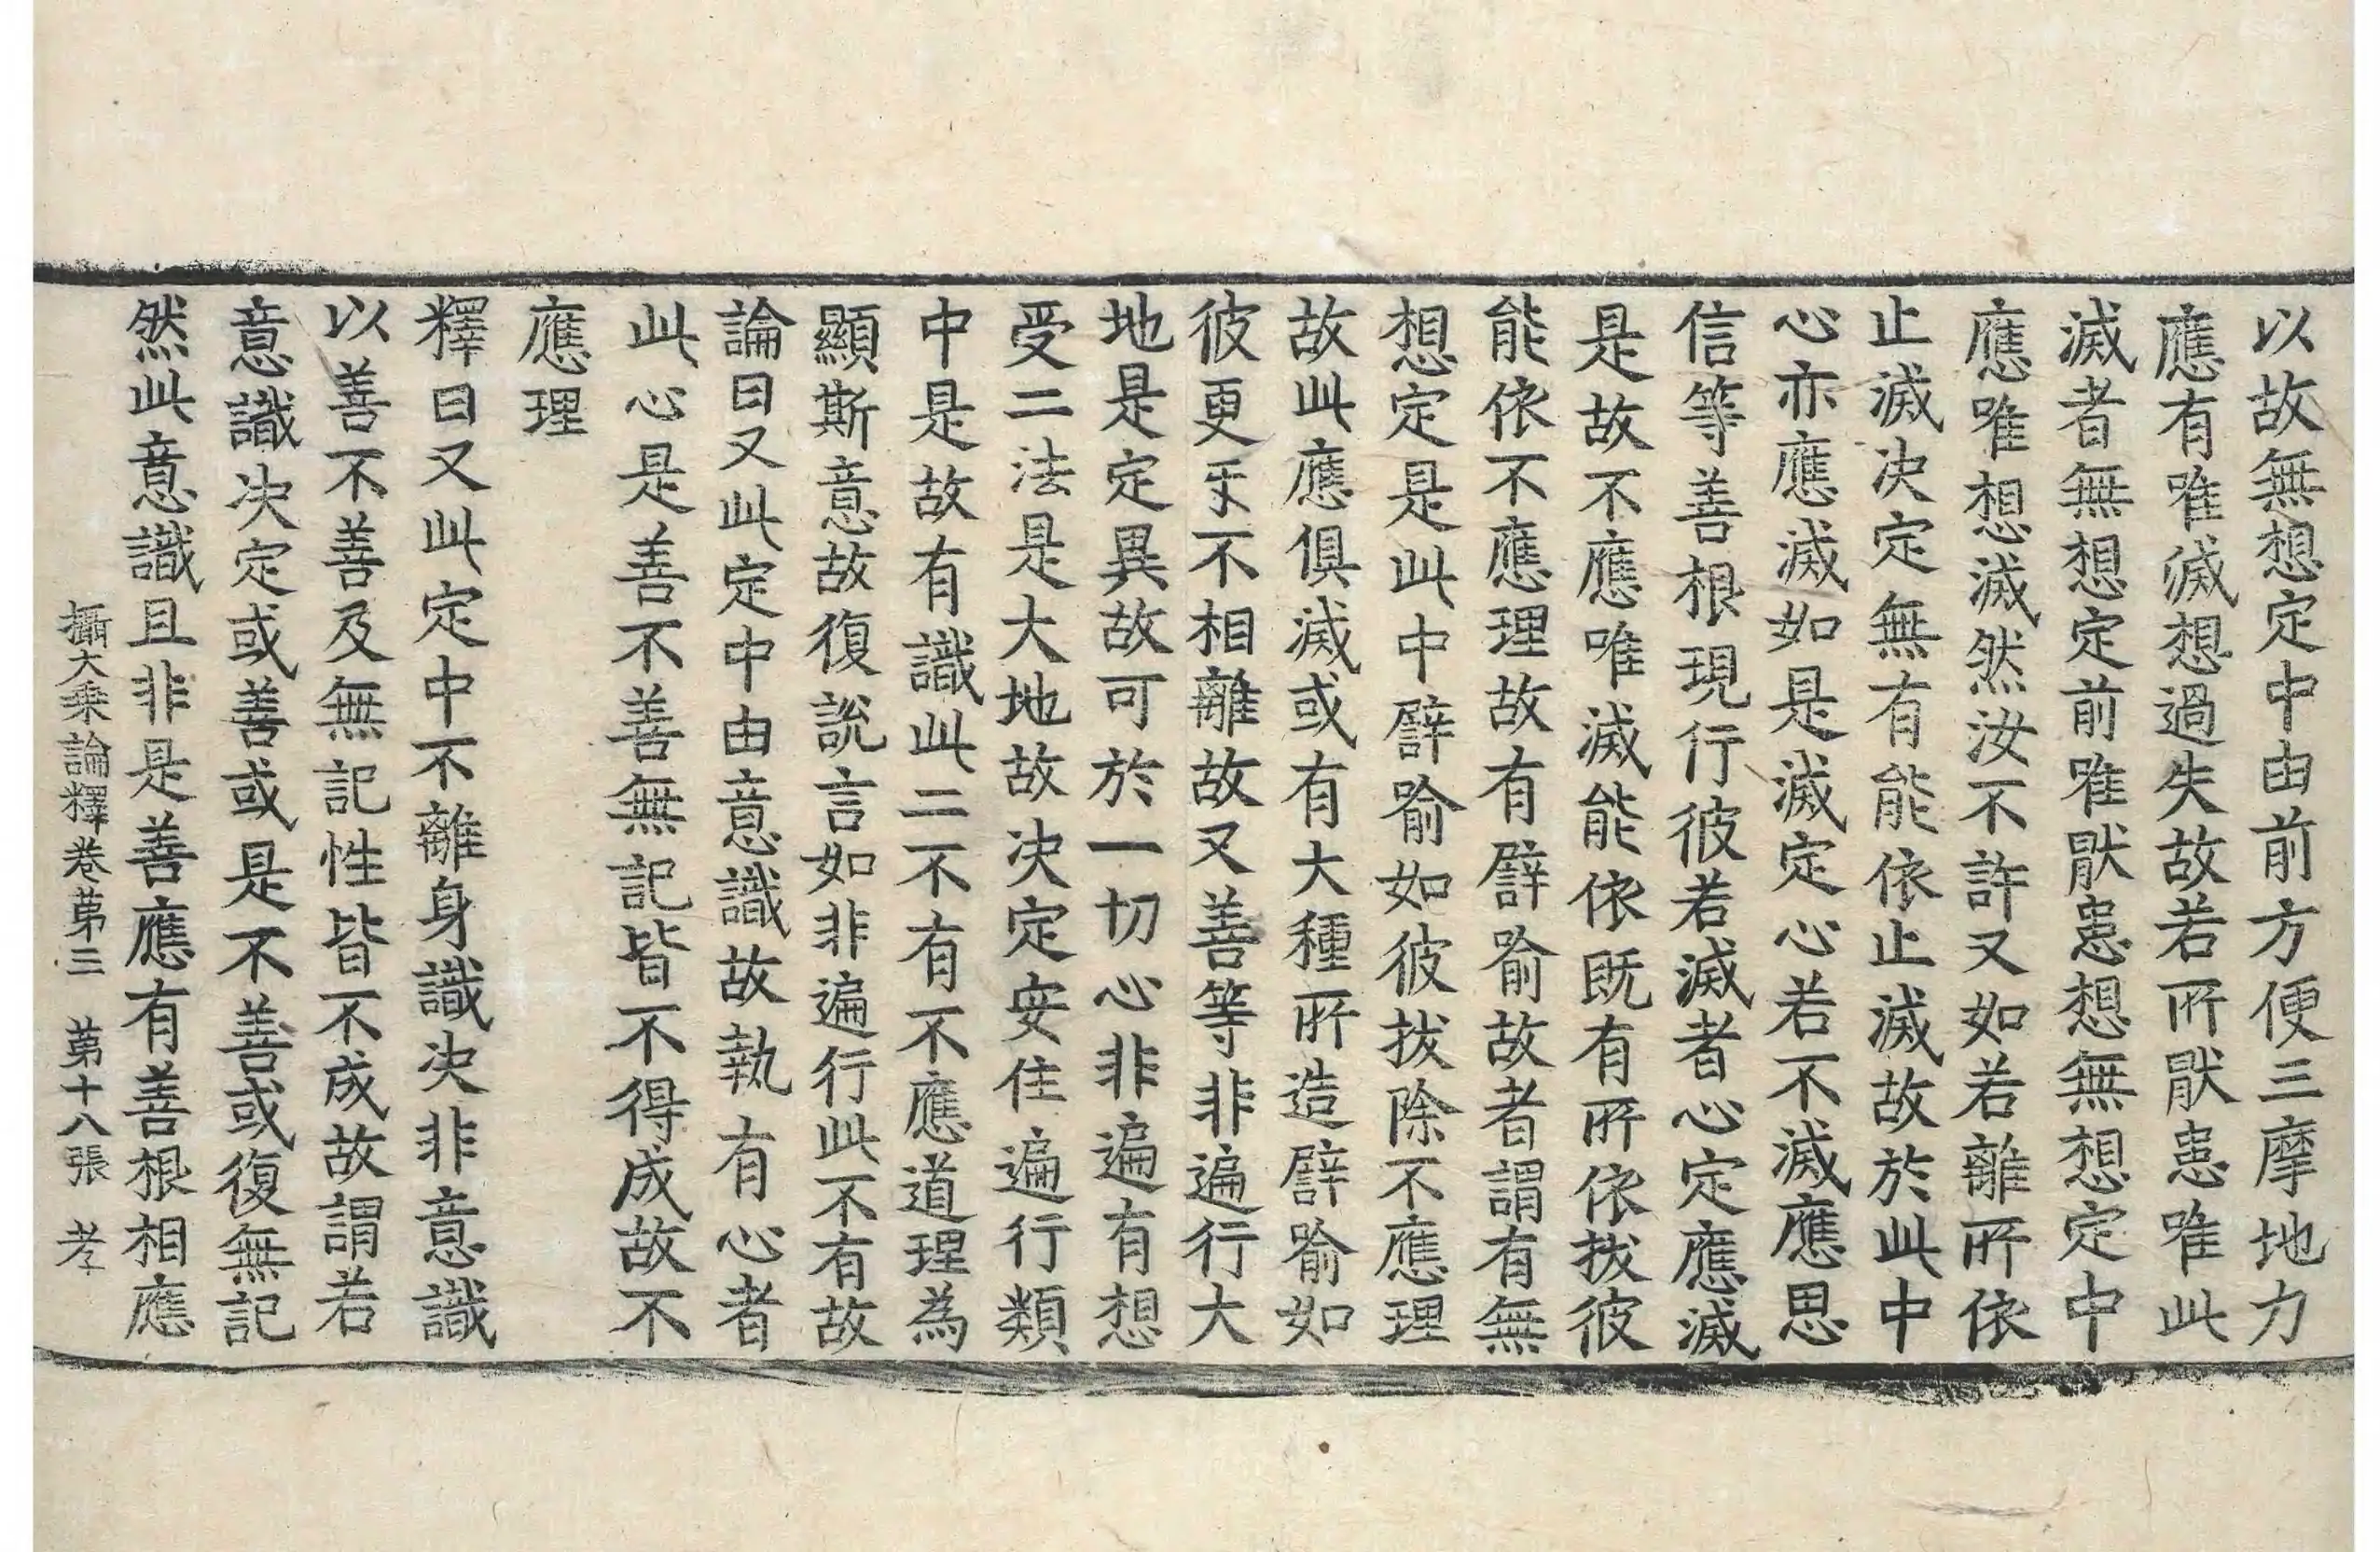 以故無想定中由前方便三摩地力
應有唯滅想過失故若所猒患唯此
滅者無想定前唯猒患想無想定中
應唯想滅然汝不許又如若離所依
止滅決定無有能依止滅故於此中
心亦應滅如是滅定心若不滅應思
信等善根現行彼若滅者心定應滅
是故不應唯滅能依既有所依拔彼
能依不應理故有譬喻故者謂有無
想定是此中譬喻如彼拔除不應理
故此應俱滅或有大種所造譬喻如
彼更㸦不相離故又善等非遍行大
地是定異故可於一切心非遍有想
受二法是大地故決定安住遍行類
中是故有識此二不有不應道理為
顯斯意故復說言如非遍行此不有故
論曰又此定中由意識故執有心者
此心是善不善無記皆不得成故不
應理
釋曰又此定中不離身識決非意識
以善不善及無記性皆不成故謂若
意識決定或善或是不善或復無記
然此意識且非是善應有善根相應
攝大乘論釋卷第三　第十八張　孝